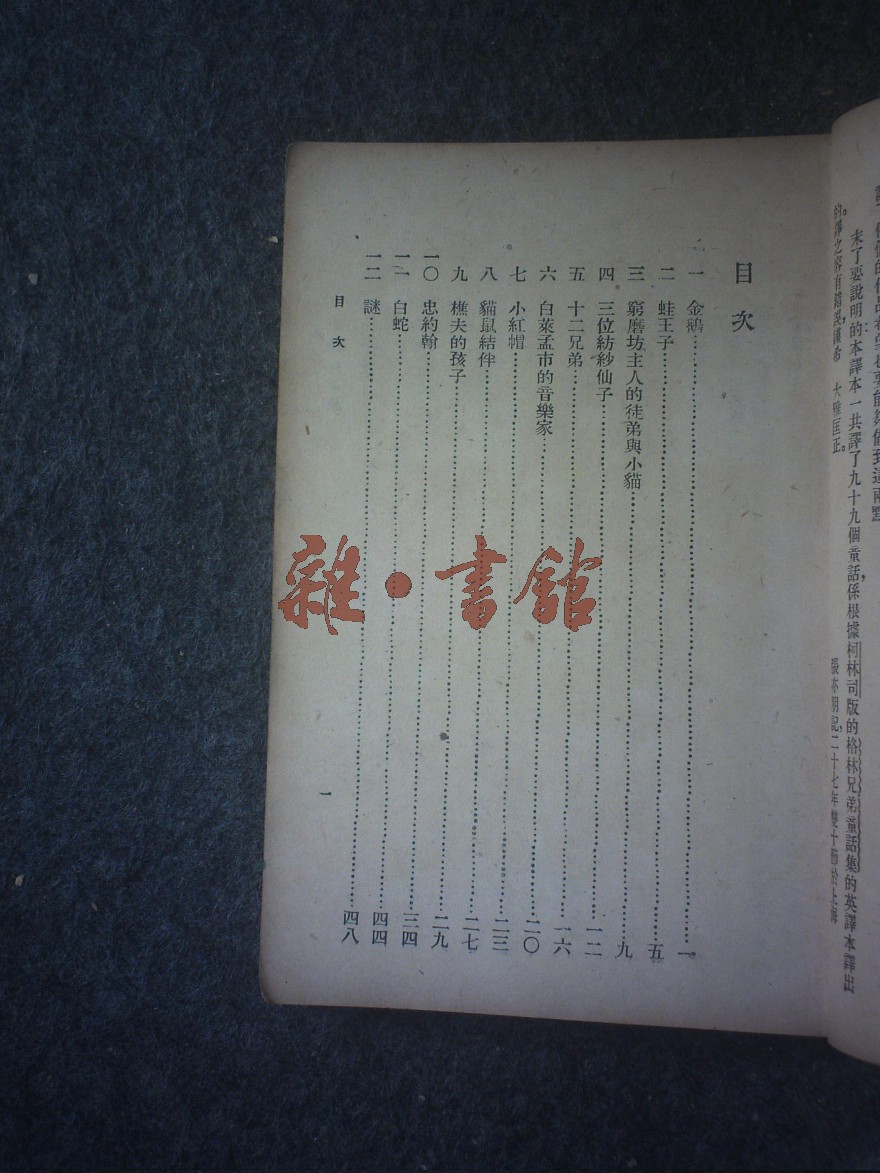 能夠做到這兩點
末了要說明的本譯本一共譯了九十九個童話，係根據柯林司版的格林兄弟童話集的英譯本譯出
的。譯之容有錯誤，謹希 大雅匡正。
張亦朋記，二十七年雙十節於上海
目次
一 金鵝……一
二 蛙王子……五
三 窮磨坊主人的徒弟與小貓……九
四 三位紡紗仙子……一二
五 十二兄弟……一六
六 白萊孟市的音樂家……二〇
七 小紅帽……二三
八 貓鼠結伴……二七
九 樵夫的孩子……二九
一〇 忠約翰……三四
一一 白蛇……四四
一二 謎……四八
目次 一
雜·書館